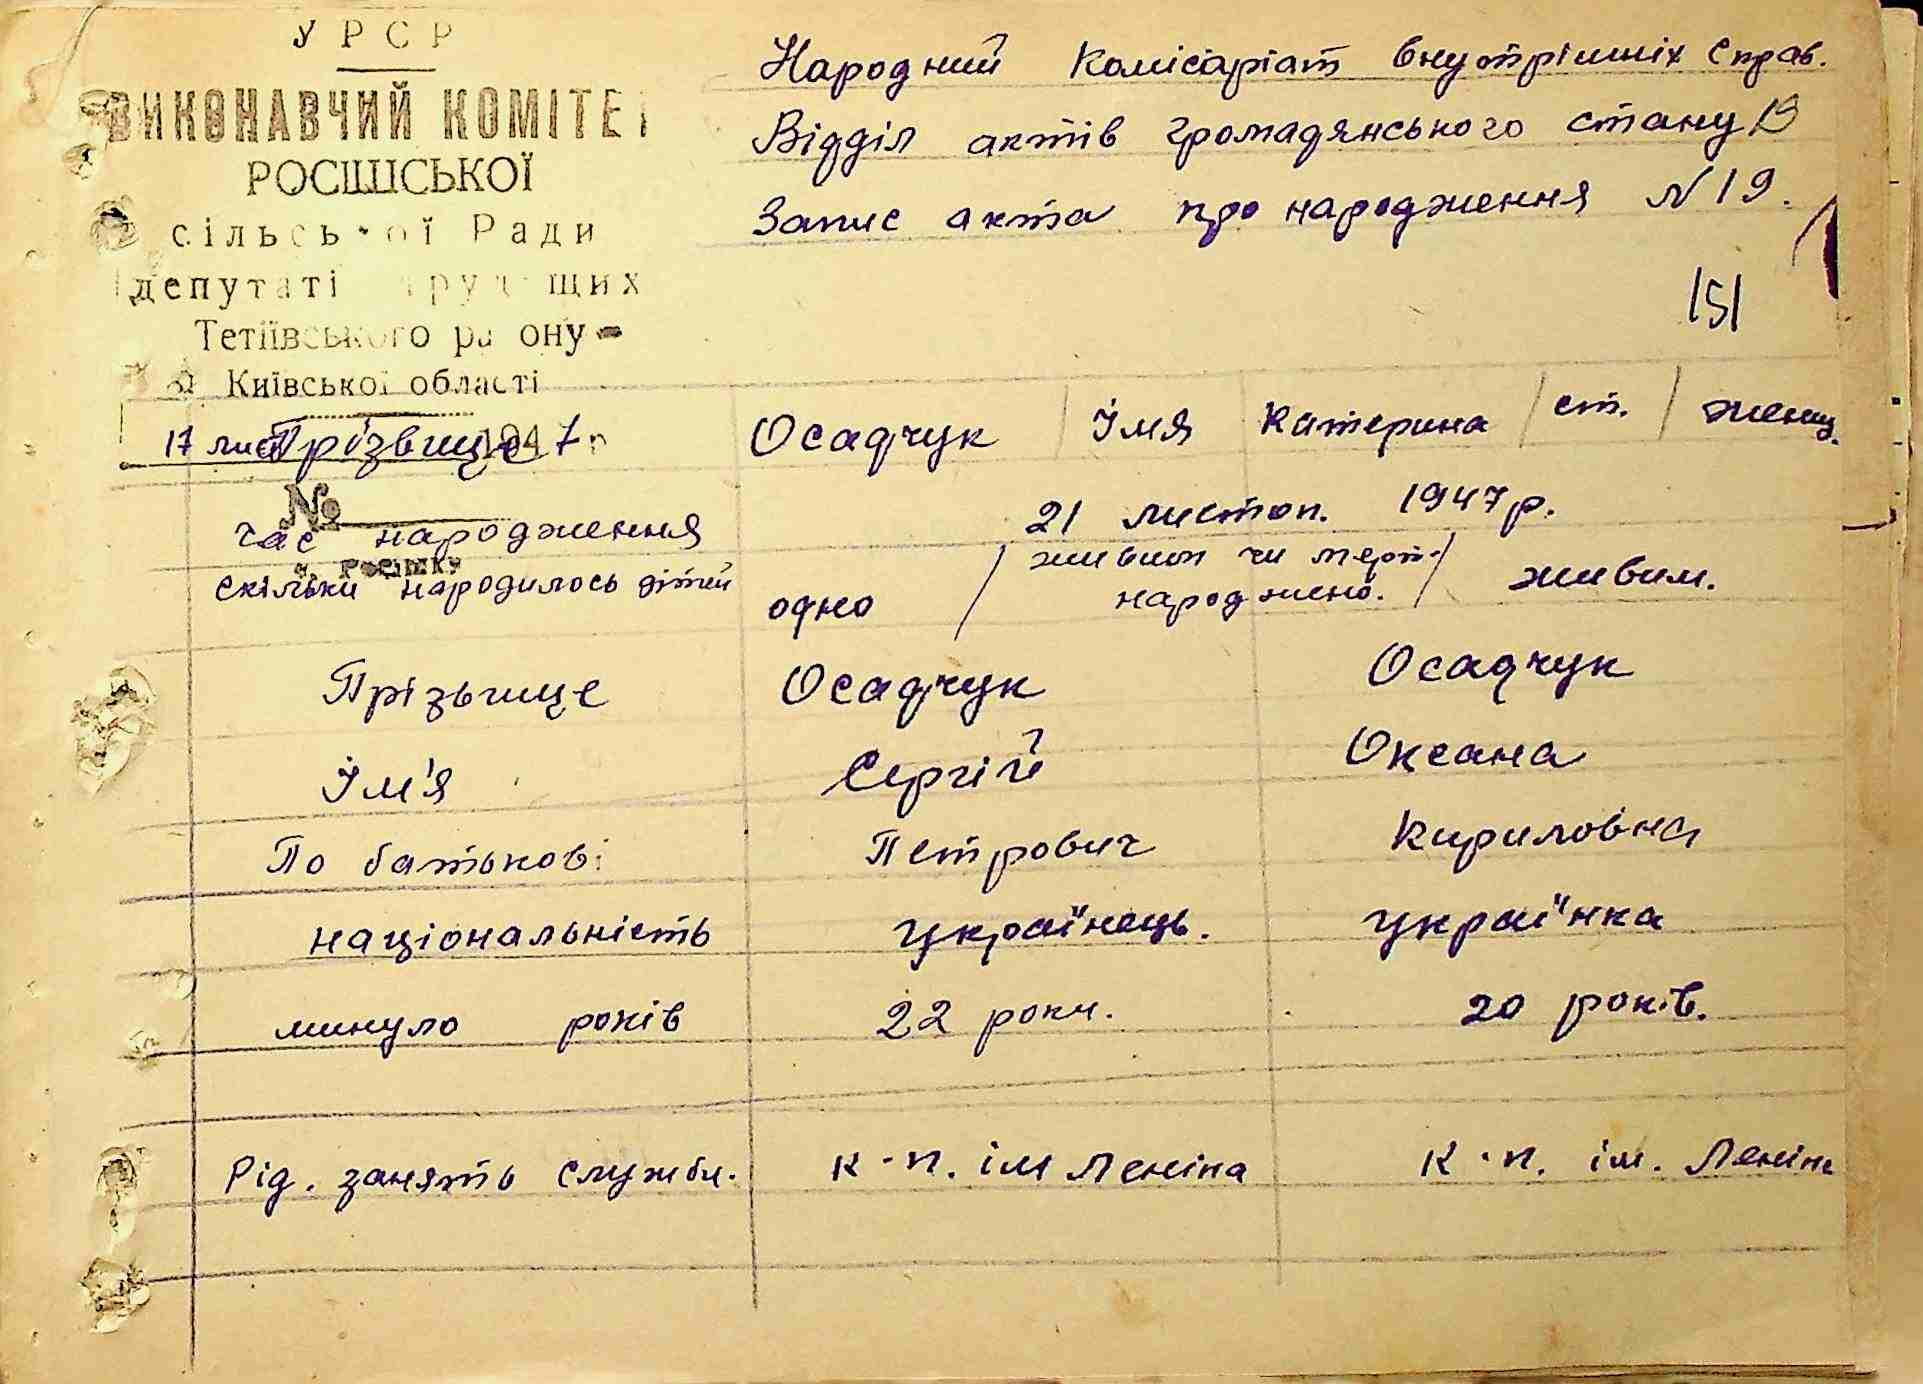 УРСР
ВИКОНАВЧИЙ КОМІТЕТ
РОСІШСЬКОЇ
сільської Ради
депутатів трудящих
Тетіївського району
Київської області
Народний Комісаріат внутрішніх справ.
Відділ актів громадянського стану
Запис акта про народження N 19.
151
17 лис 1947 р
Прізвище Осадчук Імя Катерина ст. женщ.
№
час народження 21 листоп. 1947 р.
с. Росішка
скільки народилось дітей одно живим чи мерт- народжено. живим.
Прізьвище Осадчук Осадчук
Ім'я Сергій Оксана
По батькові Петрович Кириловна
національність українець. українка
минуло років 22 роки. 20 років.
Рід. занять службі. к-п. ім Леніна к-п. ім. Леніна